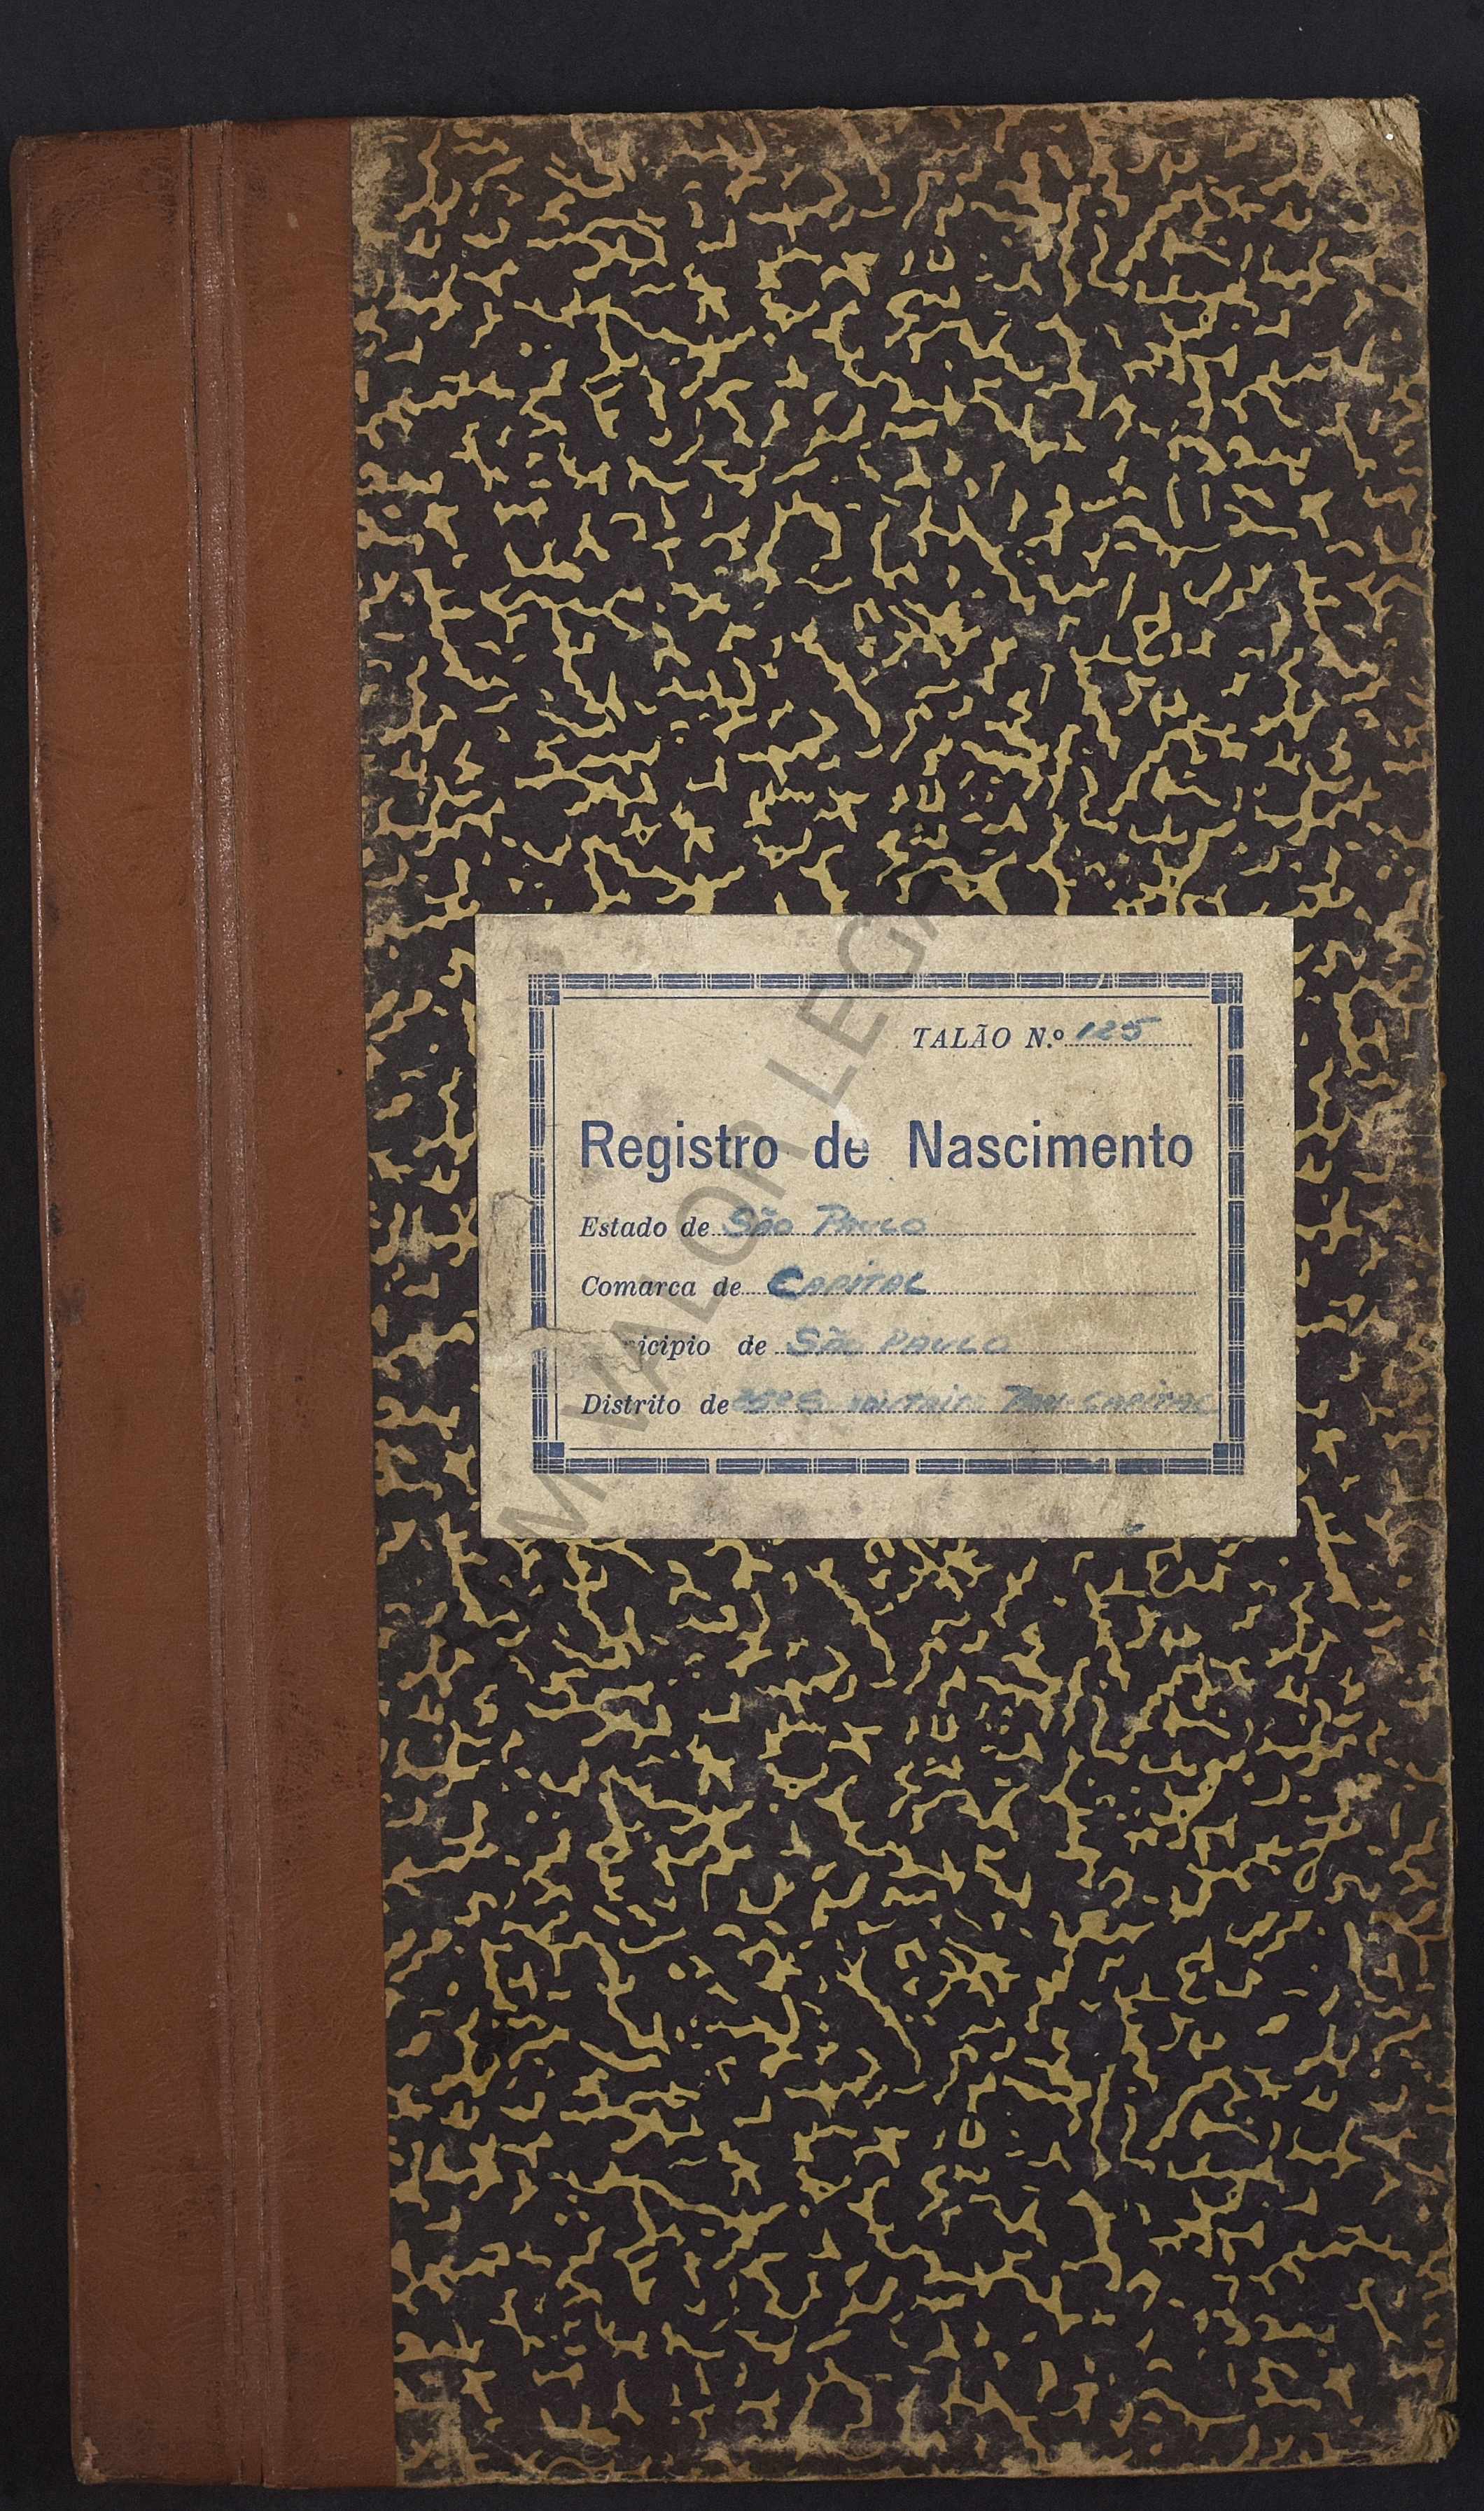 TALÃO N.º 125
Registro de Nascimento
Estado de São Paulo
Comarca de CAPITAL
icipio de São PAULO
Distrito de CAPITAL
VALOR LEGAL